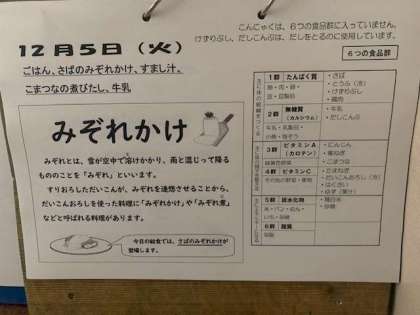 こんにゃくは、６つの食品群に入っていません。
けずりぶし、だしこんぶは、だしをとるのに使用しています。
１２月５日（火）
６つの食品群
ごはん、さばのみぞれかけ、すまし汁、
こまつなの煮びたし、牛乳
みぞれかけ
みぞれとは、雪が空中で溶けかかり、雨と混じって降る
もののことを「みぞれ」といいます。
すりおろしただいこんが、みぞれを連想させることから、
だいこんおろしを使った料理に「みぞれかけ」や「みぞれ煮」
などと呼ばれる料理があります。
今日の給食では、さばのみぞれかけが
登場します。
１群 たんぱく質
魚・肉・卵・
豆・豆製品
・さば
・とうふ（汁）
・けずりぶし
・鶏肉
２群 無機質
（カルシウム）
牛乳・乳製品・
小魚・海そう
・牛乳
・だしこんぶ
３群 ビタミンA
（カロテン）
緑黄色野菜
・にんじん
・こまつな
４群 ビタミンC
その他の野菜・果物
・たまねぎ
・だいこんおろし（汁）
・はくさい
・ゆず（果汁）
５群 炭水化物
米・パン・めん・
いも・砂糖
・精白米
・砂糖
６群 脂質
油脂